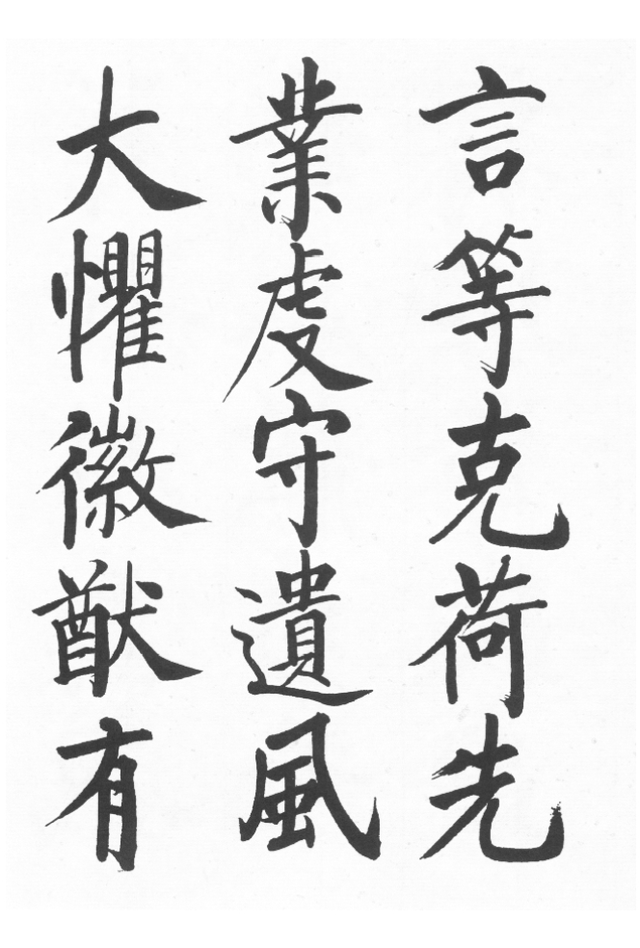 言等克荷先
業虔守遺風
大懼徽猷有